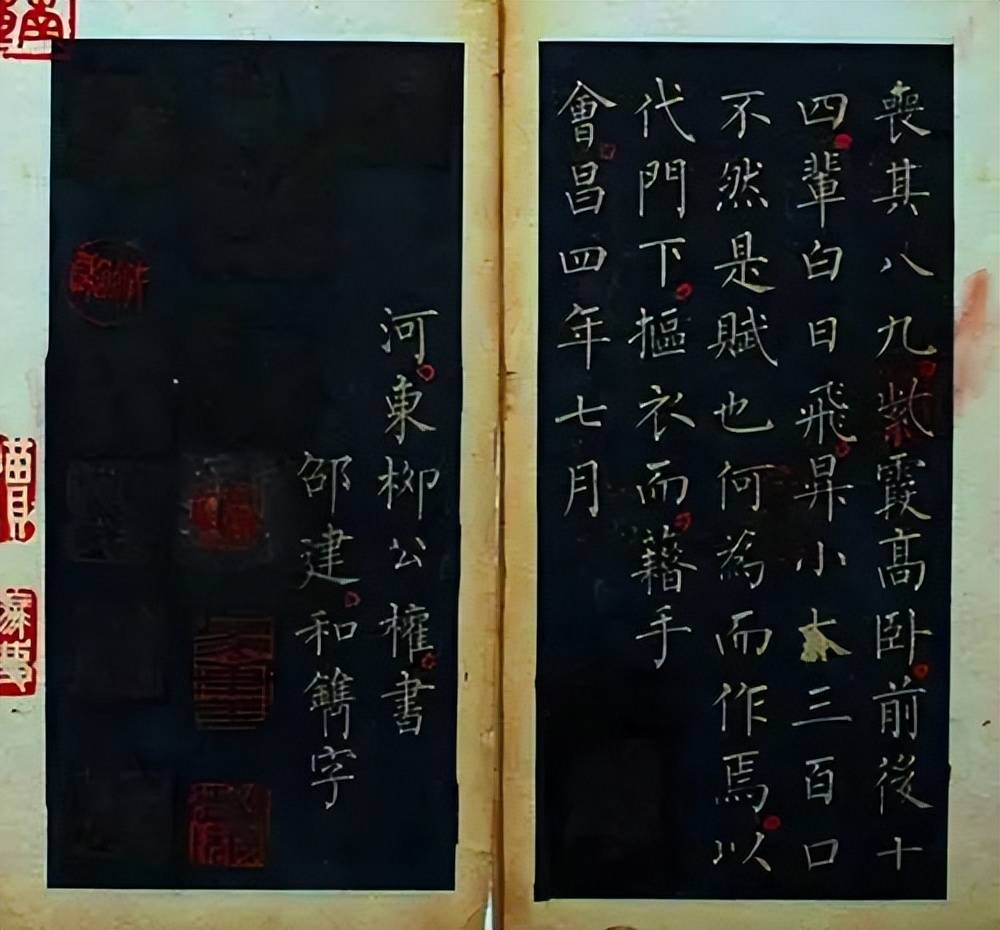 喪其八九紫霞高卧前後十
四輩白日飛昇小大三百口
不然是賦也何為而作焉以
代門下摳衣而籍手
會昌四年七月
河東柳公權書
邵建和鐫字